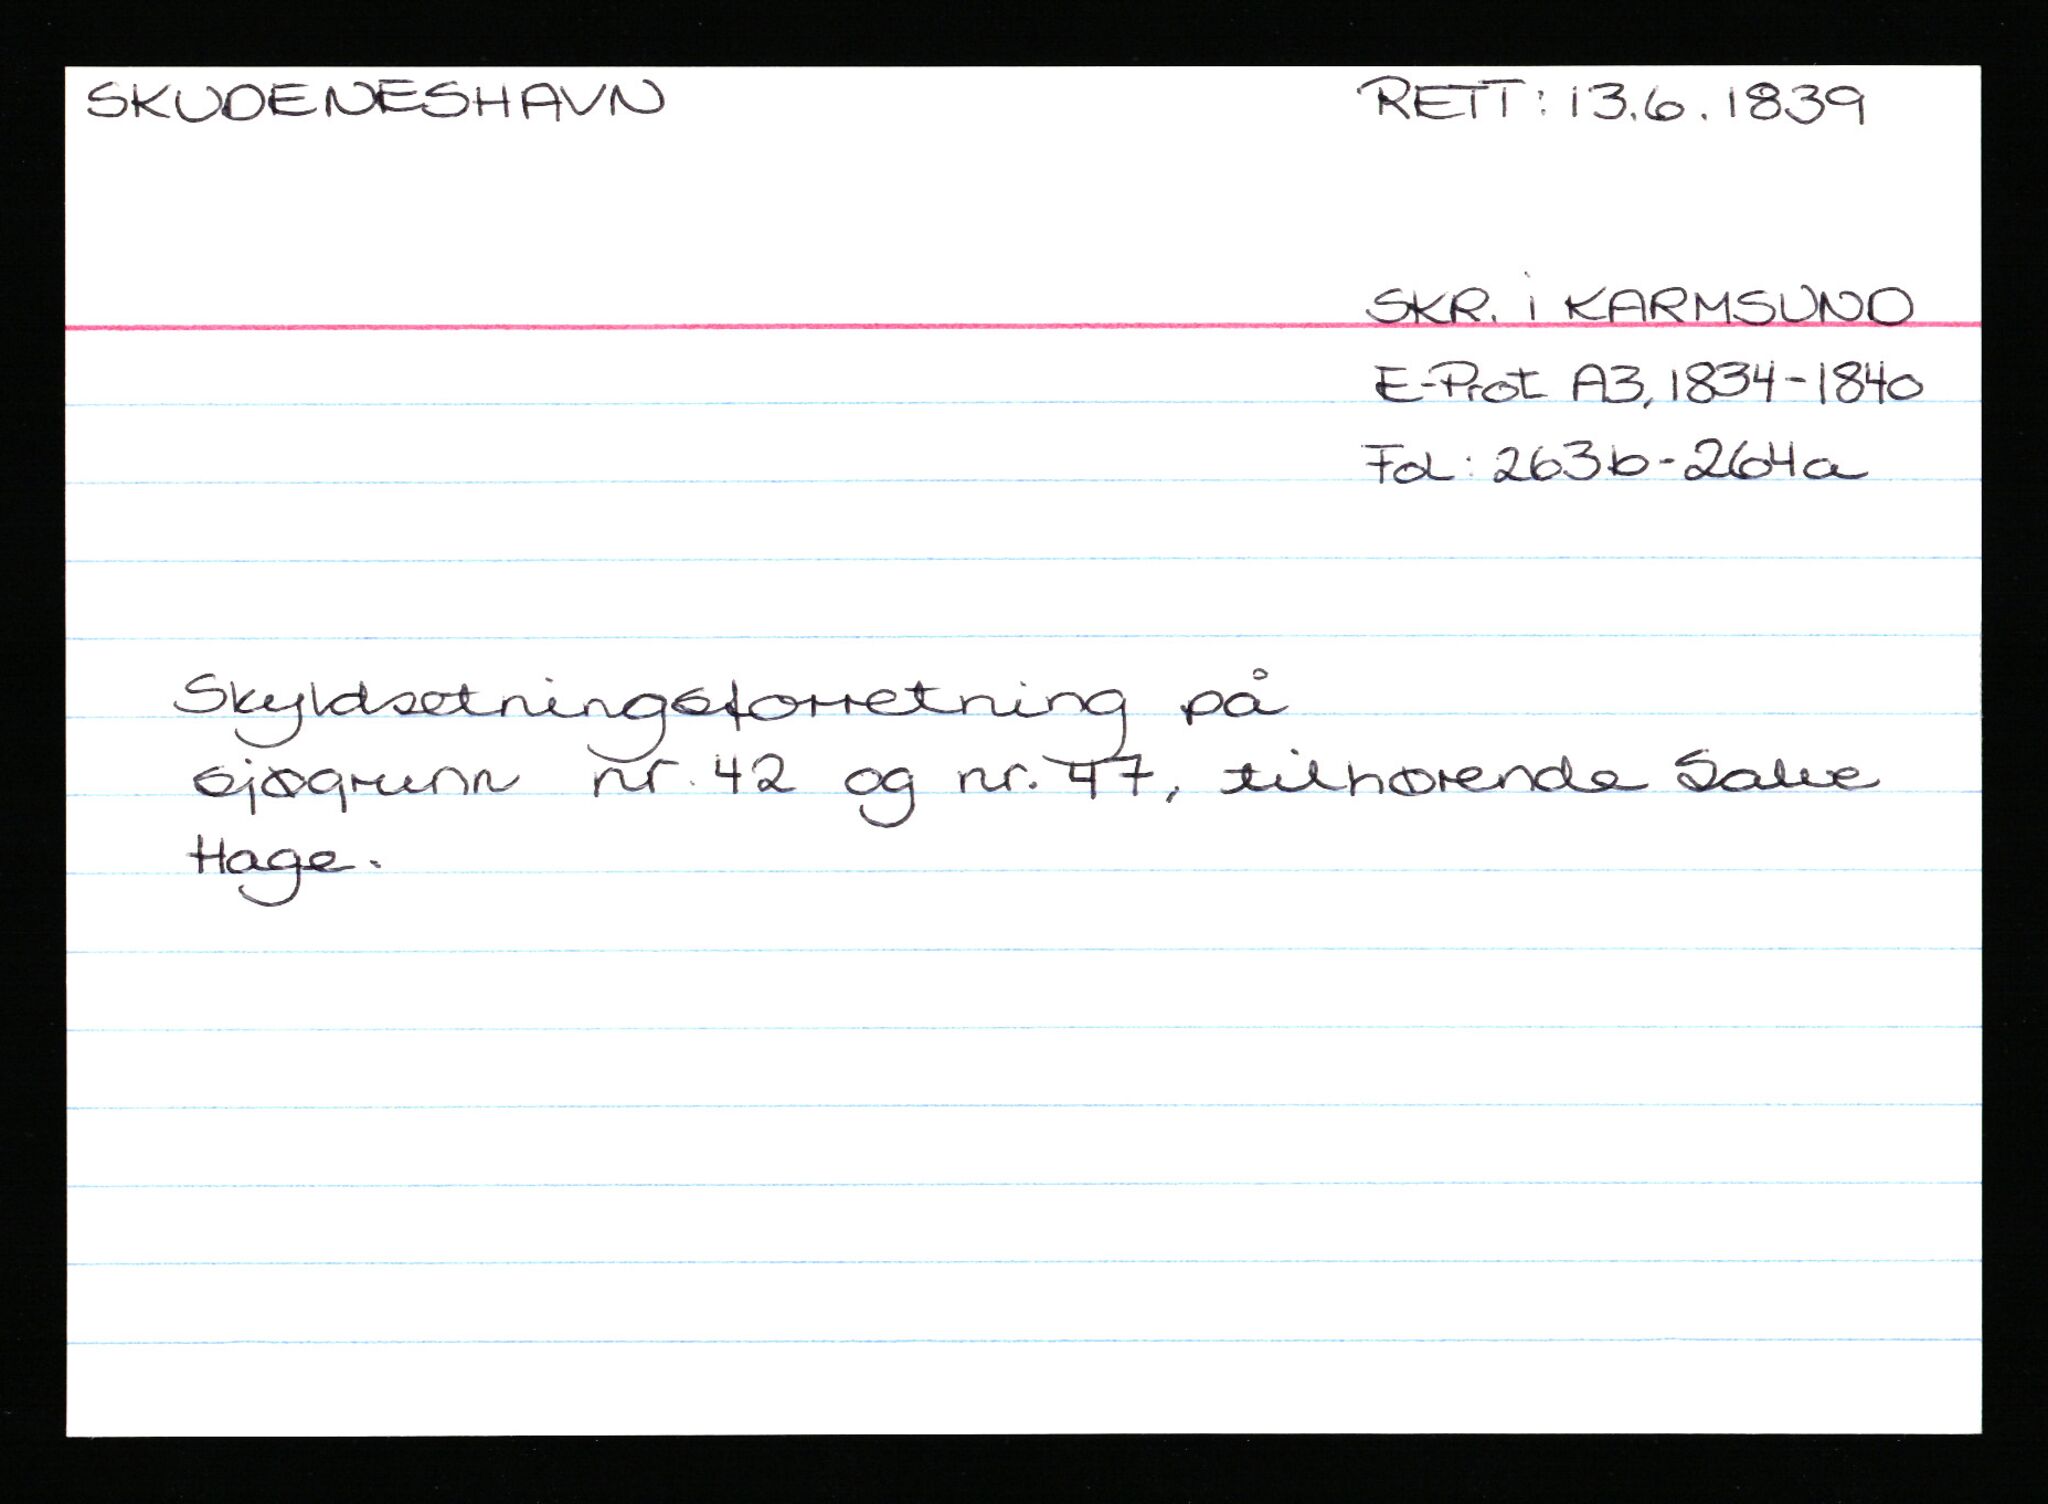 SKUDENESHAVN
RETT: 13.6.1839
SKR. i KARMSUND
E-Prot A3, 1834-1840
Fol: 263b-264a
Skyldsetningsforretning på
sjøgrunn nr. 42 og nr. 47, tilhørende Salve
Hage.